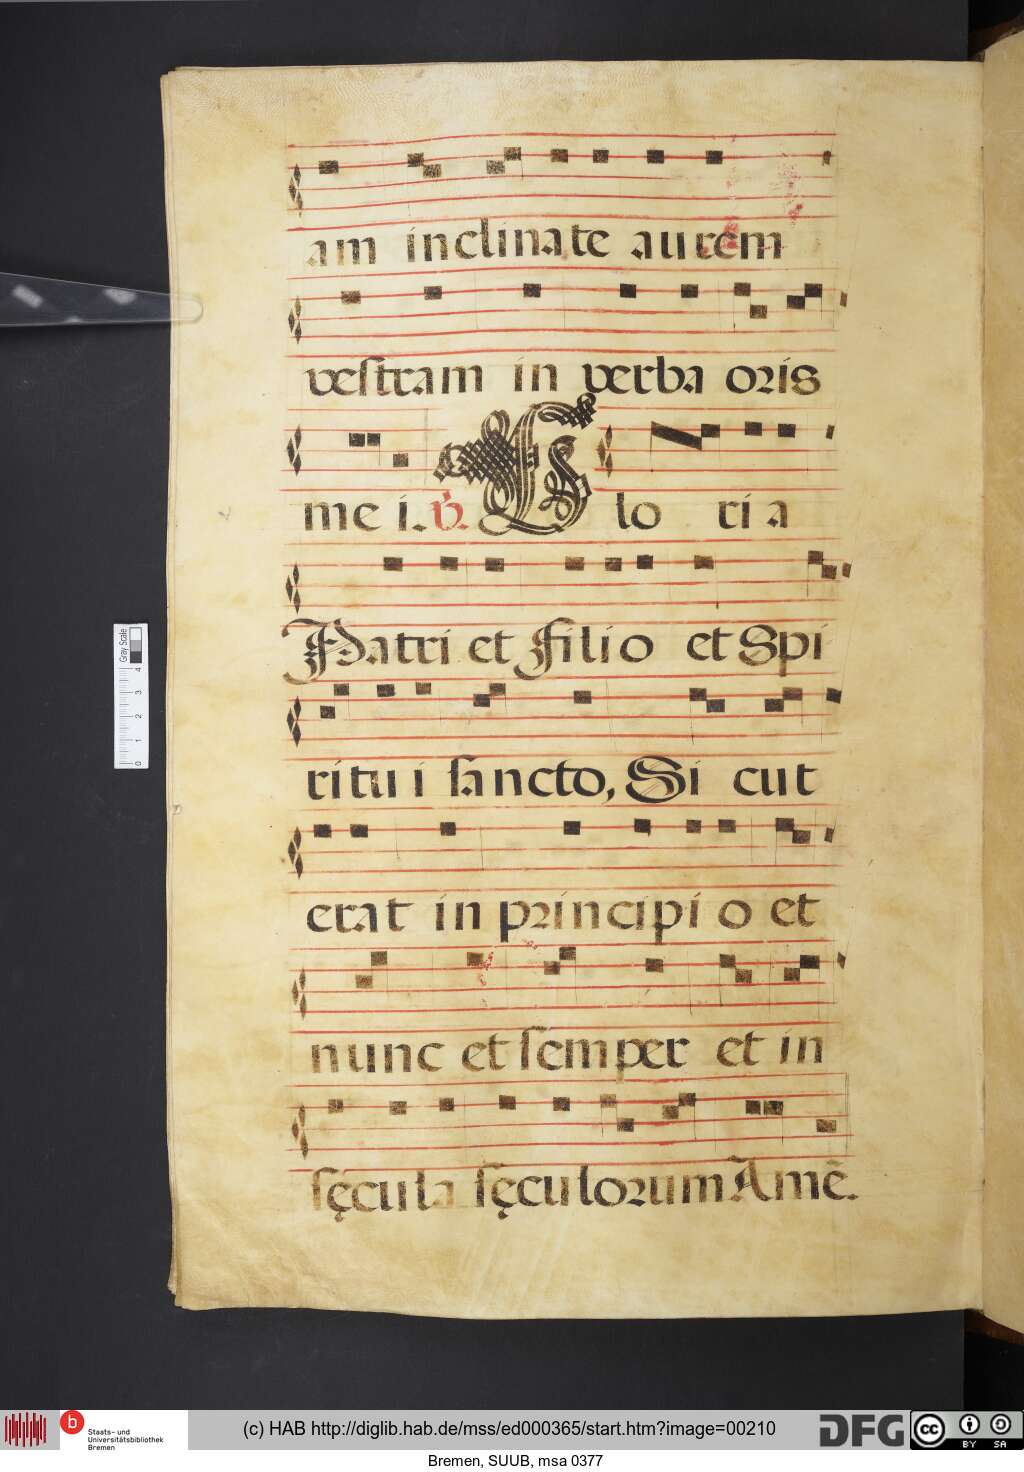 am inclinate aurem
vestram in verba oris
me i. ℣. Glo ri a
Patri et Filio et Spi
ritu i sancto, Si cut
erat in principi o et
nunc et semper et in
sęcula sęculorum Amē.
Gray Scale
0 1 2 3 4
b Staats- und
Universitätsbibliothek
Bremen
(c) HAB http://diglib.hab.de/mss/ed000365/start.htm?image=00210
DFG
cc BY SA
Bremen, SUUB, msa 0377